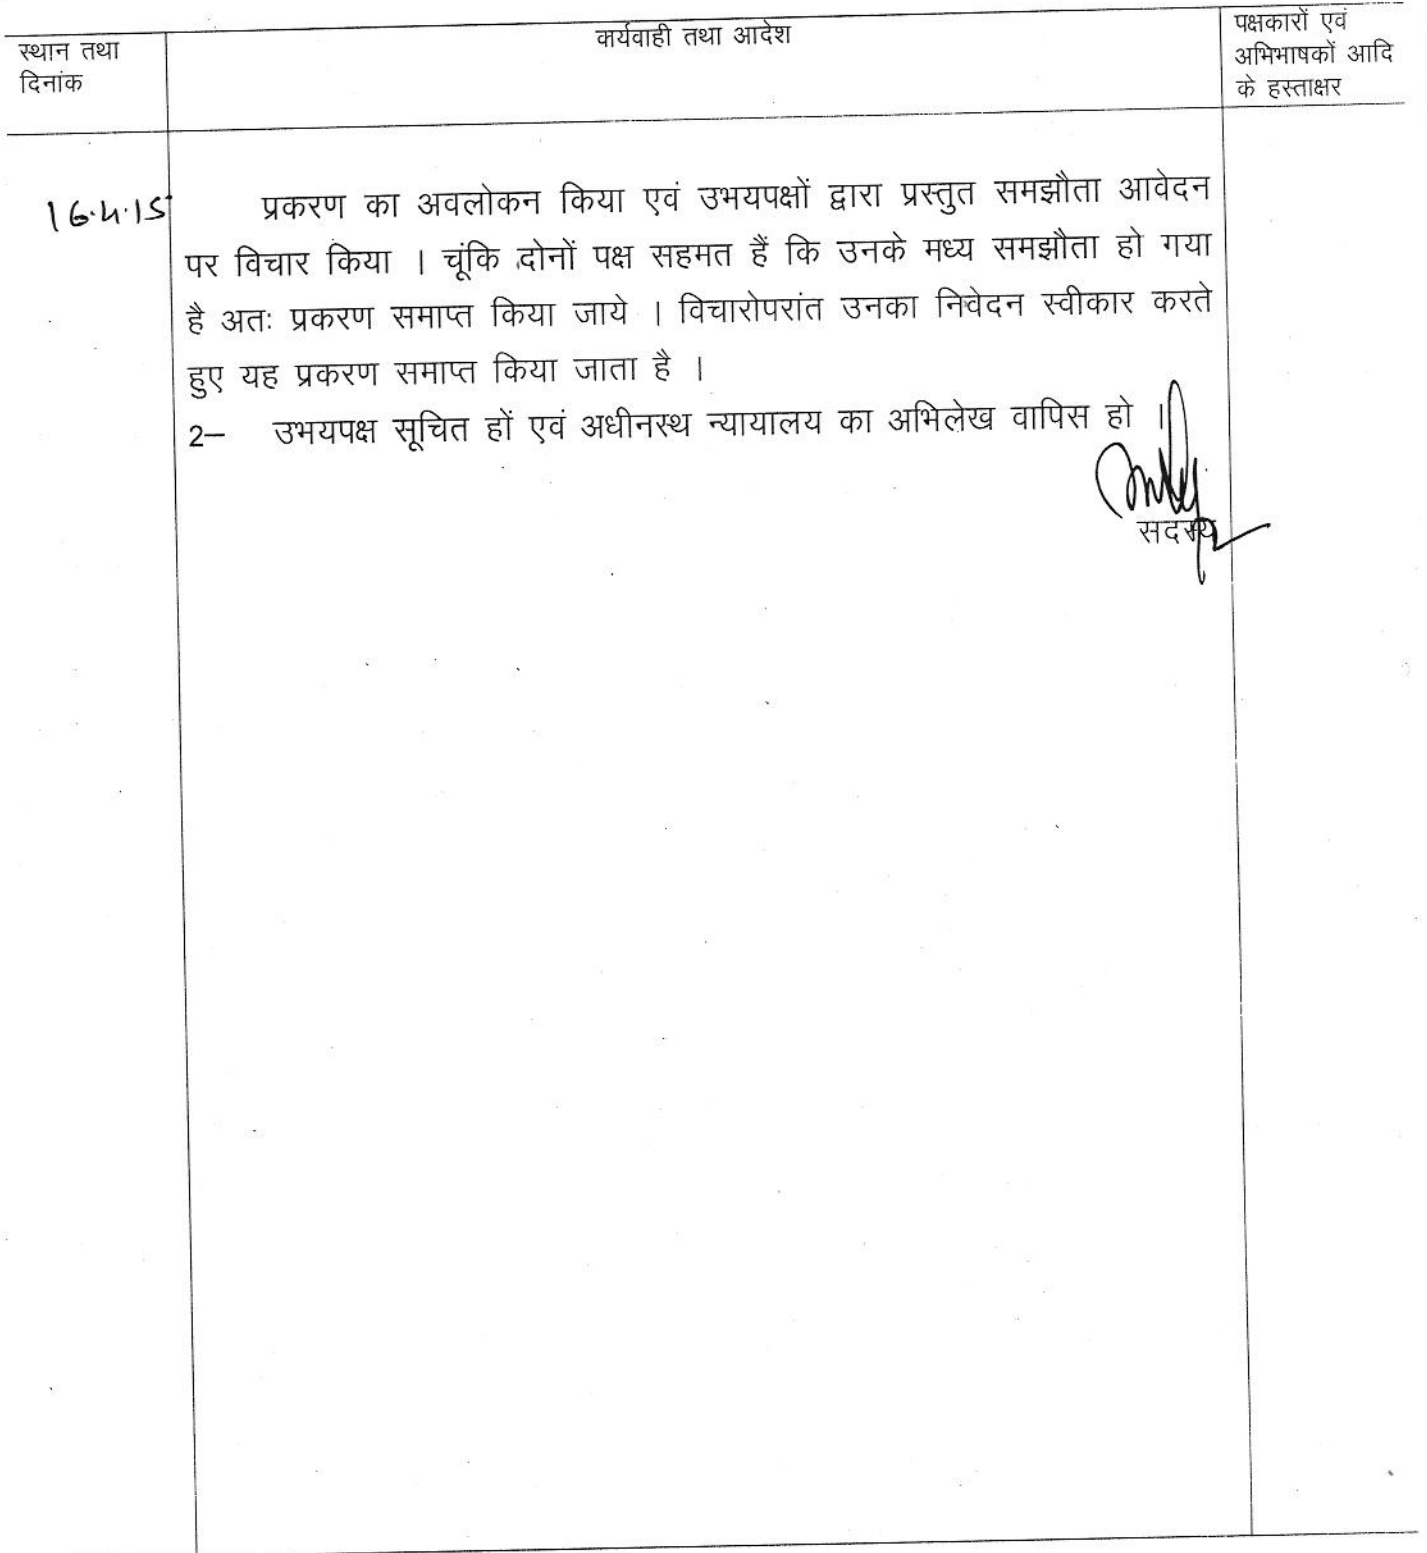 स्थान तथा
दिनांक
कार्यवाही तथा आदेश
पक्षकारों एवं
अभिभाषकों आदि
के हस्ताक्षर
16.4.15
प्रकरण का अवलोकन किया एवं उभयपक्षों द्वारा प्रस्तुत समझौता आवेदन
पर विचार किया । चूंकि दोनों पक्ष सहमत हैं कि उनके मध्य समझौता हो गया
है अतः प्रकरण समाप्त किया जाये । विचारोपरांत उनका निवेदन स्वीकार करते
हुए यह प्रकरण समाप्त किया जाता है ।
2– उभयपक्ष सूचित हों एवं अधीनस्थ न्यायालय का अभिलेख वापिस हो ।
सदस्य